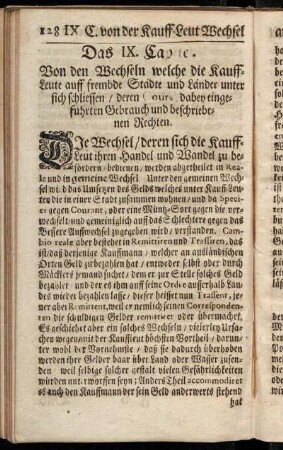 128 IX C. von der Kauff-Leut Wechsel
Das IX. Cap
Von den Wechseln welche die Kauff-
Leute auff frembde Städte und Länder unter
sich schliessen / deren Cours, dabey einge-
führten Gebrauch und beschriebe-
nen Rechten.
DIe Wechsel / deren sich die Kauff-
Leut ihren Handel und Wandel zu be-
fördern / bedienen, werden abgetheilet in Rea-
le und in gemeine Wechsel. Unter den gemeinen Wech
sel wird das Umsetzen des Gelds welches unter Kauff-Leu-
ten die in einer Stadt zusammen wohnen / und da Speci-
es gegen Courant, oder eine Müntz-Sort gegen die ver-
wechselt und gemeiniglich auf das Schlechtere gegen das
Bessere Auffwechsel zugegeben wird / verstanden. Cam-
bio reale aber bestehet in Remittiren und Trassiren, das
ist / daß derjenige Kauffmann / welcher an ausländischen
Orten Geld zu bezahlen hat / entweder selbst oder durch
Mäcklers jemand suchet / dem er zur Stelle solches Geld
bezahlet / und der es ihm auff seine Ordre ausserhalb Lan-
des wieder bezahlen lasse / dieser heisset nun Trassent, je-
ner aber Remittent, weil er nemlich seinen Correspondenten
die schuldigen Gelder remittiret oder übermachet.
Es geschiehet aber ein solches Wechseln / vielerley Ursa-
chen wegen mit der Kauffleut höchsten Vortheil / darun-
ter wohl der Vornehmste / daß sie dadurch überhoben
werden ihre Gelder baar über Land oder Wasser zusen-
den weil selbige solcher gestalt vielen Gefährlichkeiten
würden unterworffen seyn; Anders Theil accommodiret
es auch den Kauffmann der sein Geld anderwerts stehend
hat